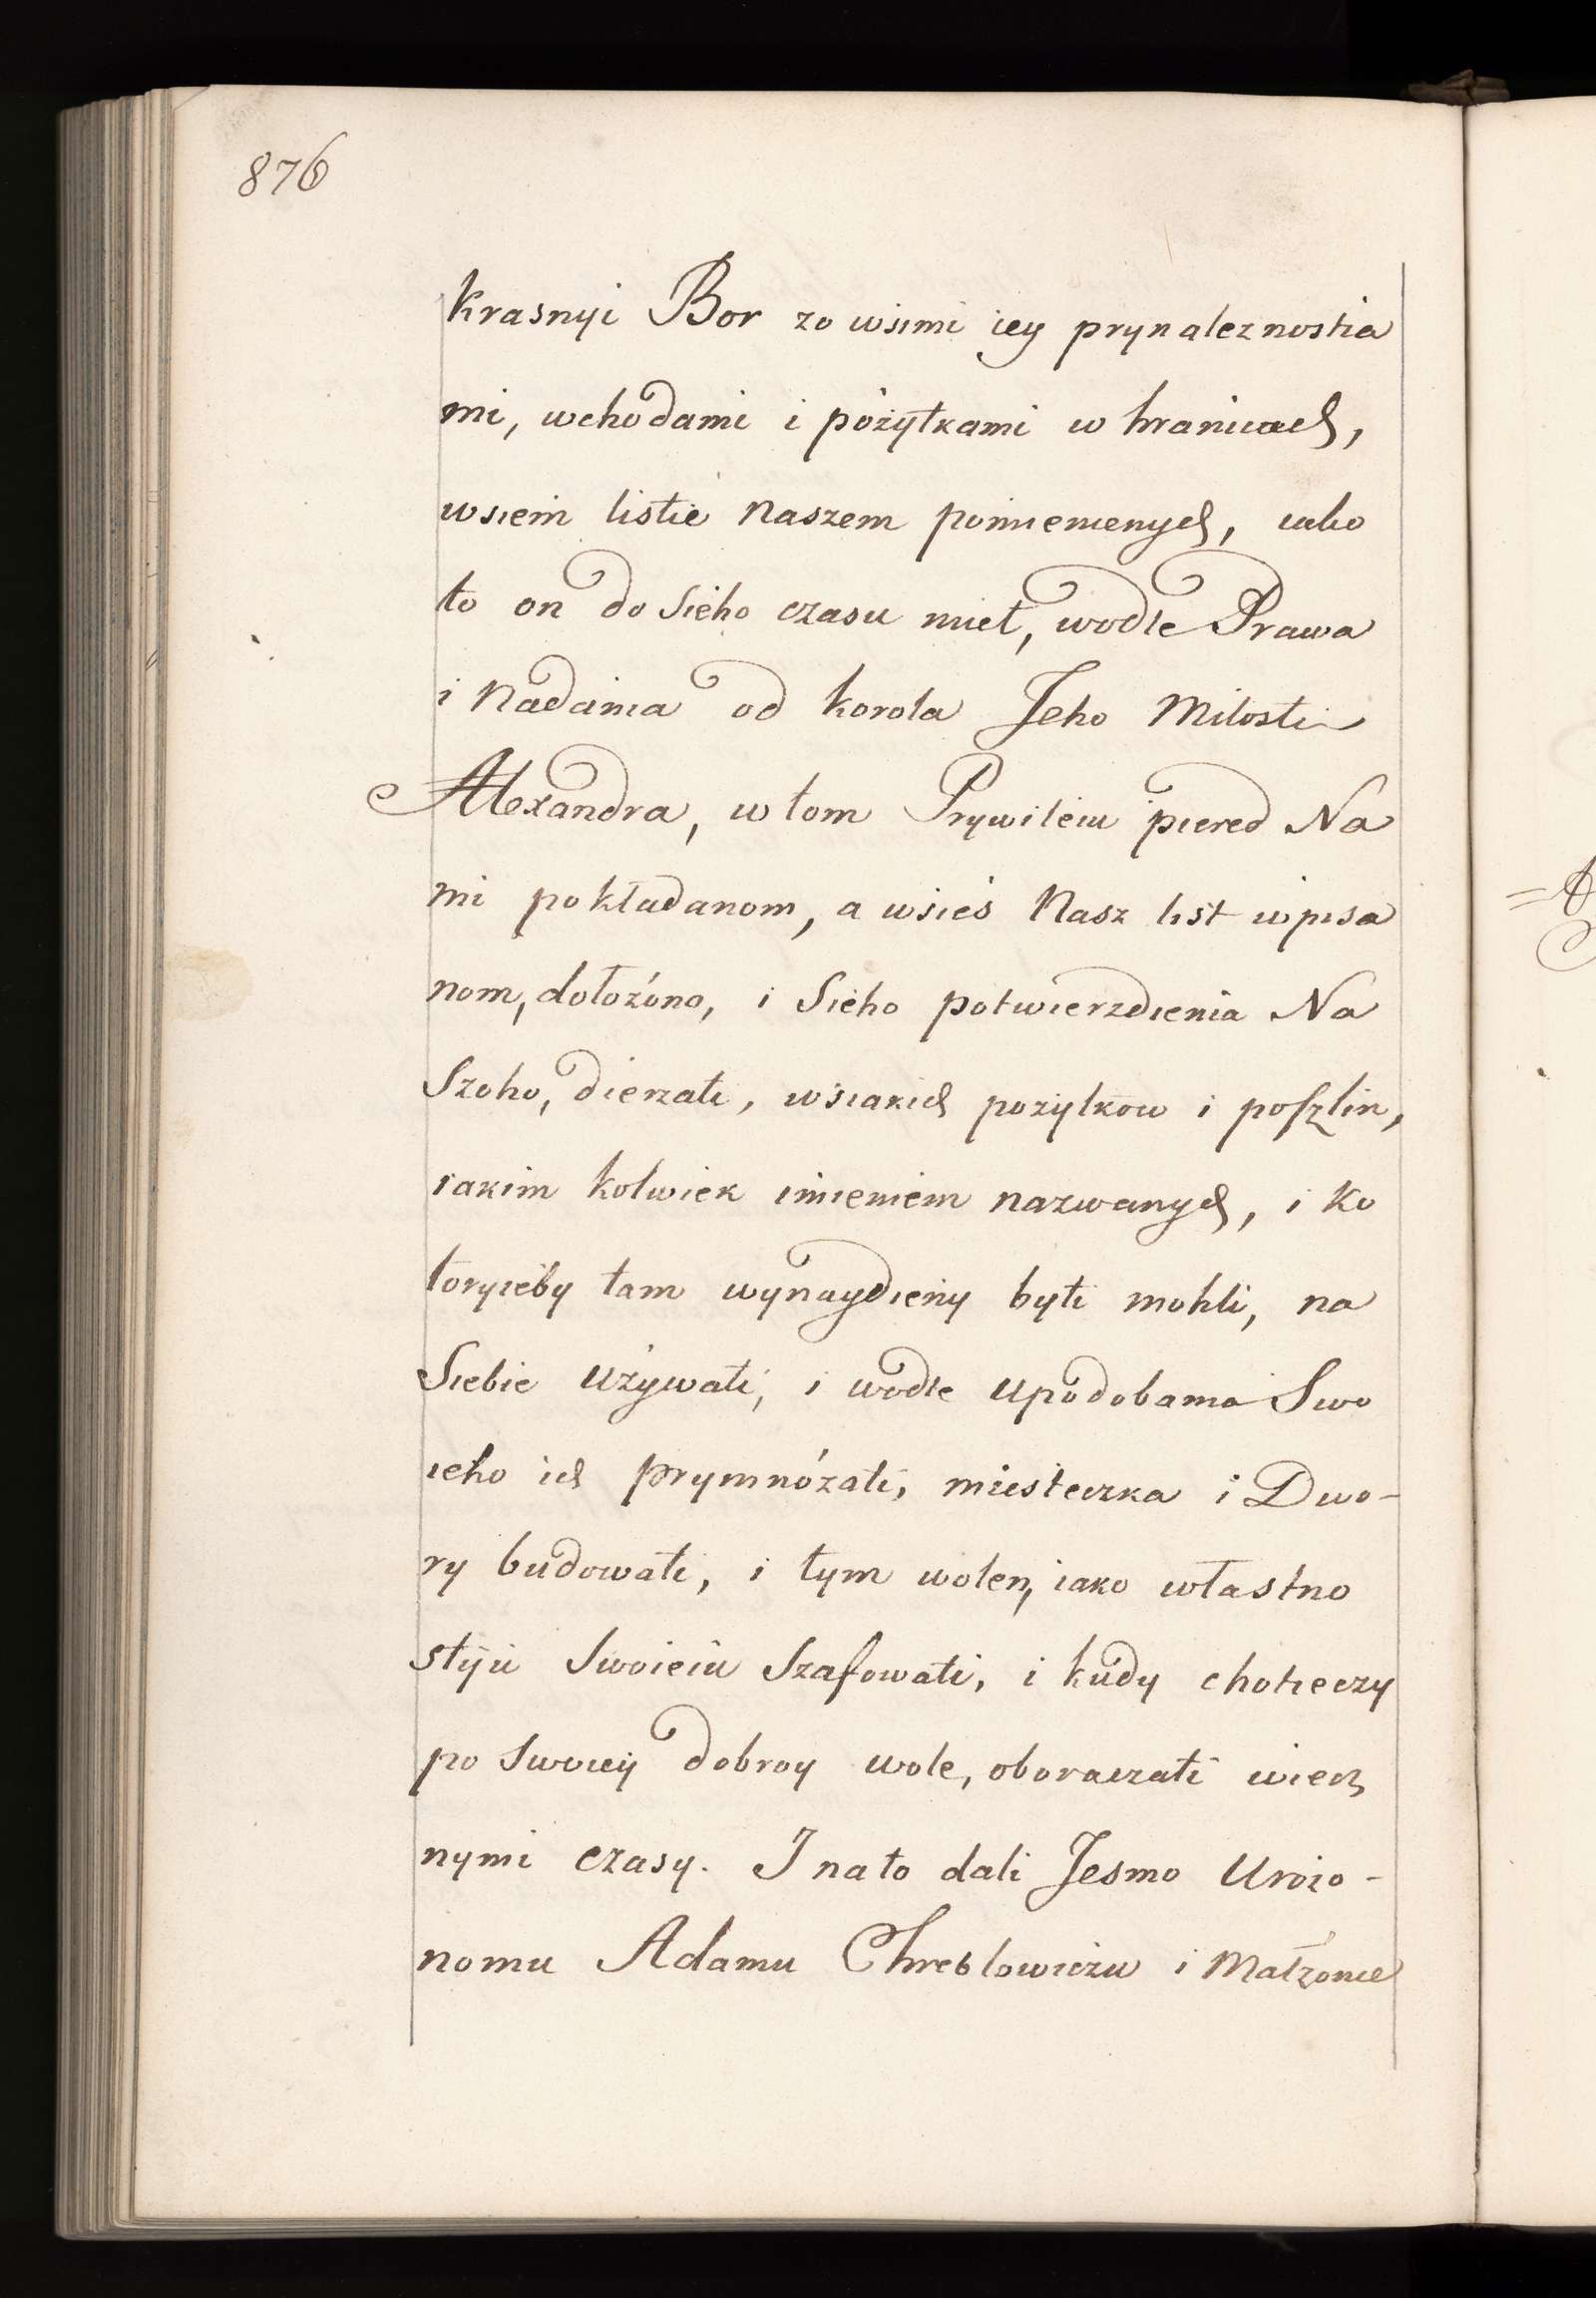 876
Krasnyi Bor zo wsimi iey prynaleznostia
mi, wchodami i pożytkami w hranicach,
wsiem listie Naszem pomienienych, iako
to on do Sieho czasu mieł, wodle Prawa
i Nadania od Korola Jeho Miłosti
Alexandra, w tom Prywileiu pered Na
mi pokładanom, a wsieś Nasz list wpisa
nom, dołożono, i Sieho potwierzdienia Na
Szoho, dierzati, wsiakich pożytkow i poszlin,
iakim kolwiek imieniem nazwanych, i Ko
toryieby tam wynaydieny byti mohli, na
Siebie używati, i wodle upodobania Swo
ieho ich prymnóżati, miesteczka i Dwo-
ry budowati, i tym wolen, iako własno
stiju Swoieiu Szafowati, i kudy chotieczy
po Swoiey dobroy wole, oboraczati wiecz
nymi czasy. I na to dali Jesmo Urożo-
nomu Adamu Chreblowiczu i Małżonie